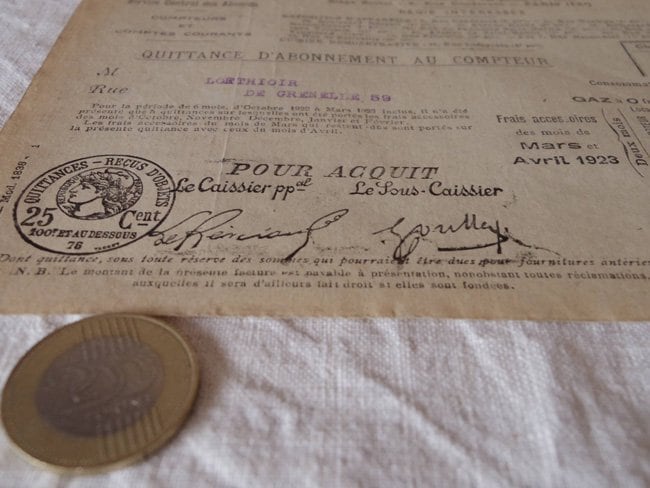 Service Central des Abonnés
COMPTEURS
ET
COMPTES COURANTS
RÉGIE INTÉRESSÉE
QUITTANCE D'ABONNEMENT AU COMPTEUR
M
LOETHIOIR
Rue DE GRENELLE 59
Pour la période de 6 mois, d'Octobre 1922 à Mars 1923 inclus, il n'a été
présenté que 5 quittances sur lesquelles ont été portés les frais accessoires
des mois d'Octobre, Novembre Décembre, Janvier et Février
Les frais accessoires du mois de Mars qui restent dûs sont portés sur
la présente quittance avec ceux du mois d'Avril.
Consommat
GAZ à 0 f
Frais accessoires
des mois de
Mars et
Avril 1923
Deux mois
Mod. 1838 - 1
QUITTANCES - REÇUS D'OBJETS
25 Cent
100f. ET AU DESSOUS
76
POUR ACQUIT
Le Caissier ppal Le Sous-Caissier
Dont quittance, sous toute réserve des sommes qui pourraient être dues pour fournitures antérieu
N. B. Le montant de la présente facture est payable à présentation, nonobstant toutes réclamations,
auxquelles il sera d'ailleurs fait droit si elles sont fondées.